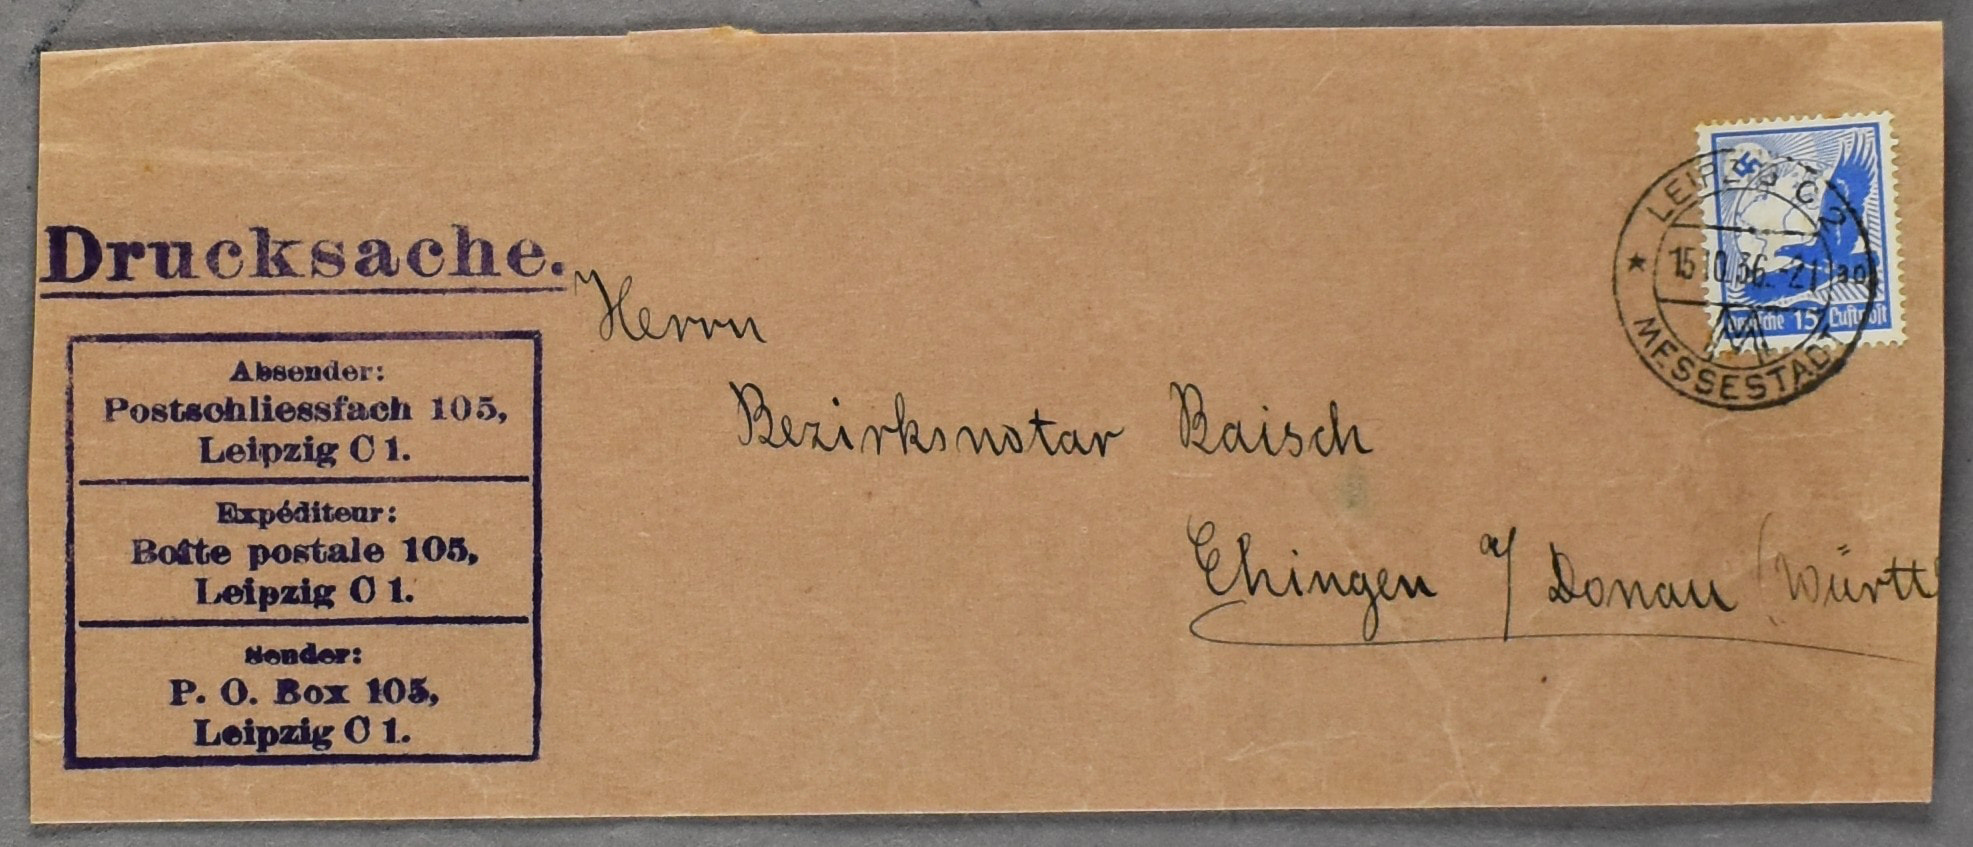 Drucksache.
Absender:
Postschliessfach 105,
Leipzig C 1.
Expéditeur:
Boîte postale 105,
Leipzig C 1.
Sender:
P. O. Box 105,
Leipzig C 1.
Herrn
Bezirksnotar Raisch
Ehingen a/ Donau (Württ
LEIPZIG C 2
15.10.36.-21
* MESSESTADT
Deutsche 15 Luftpost